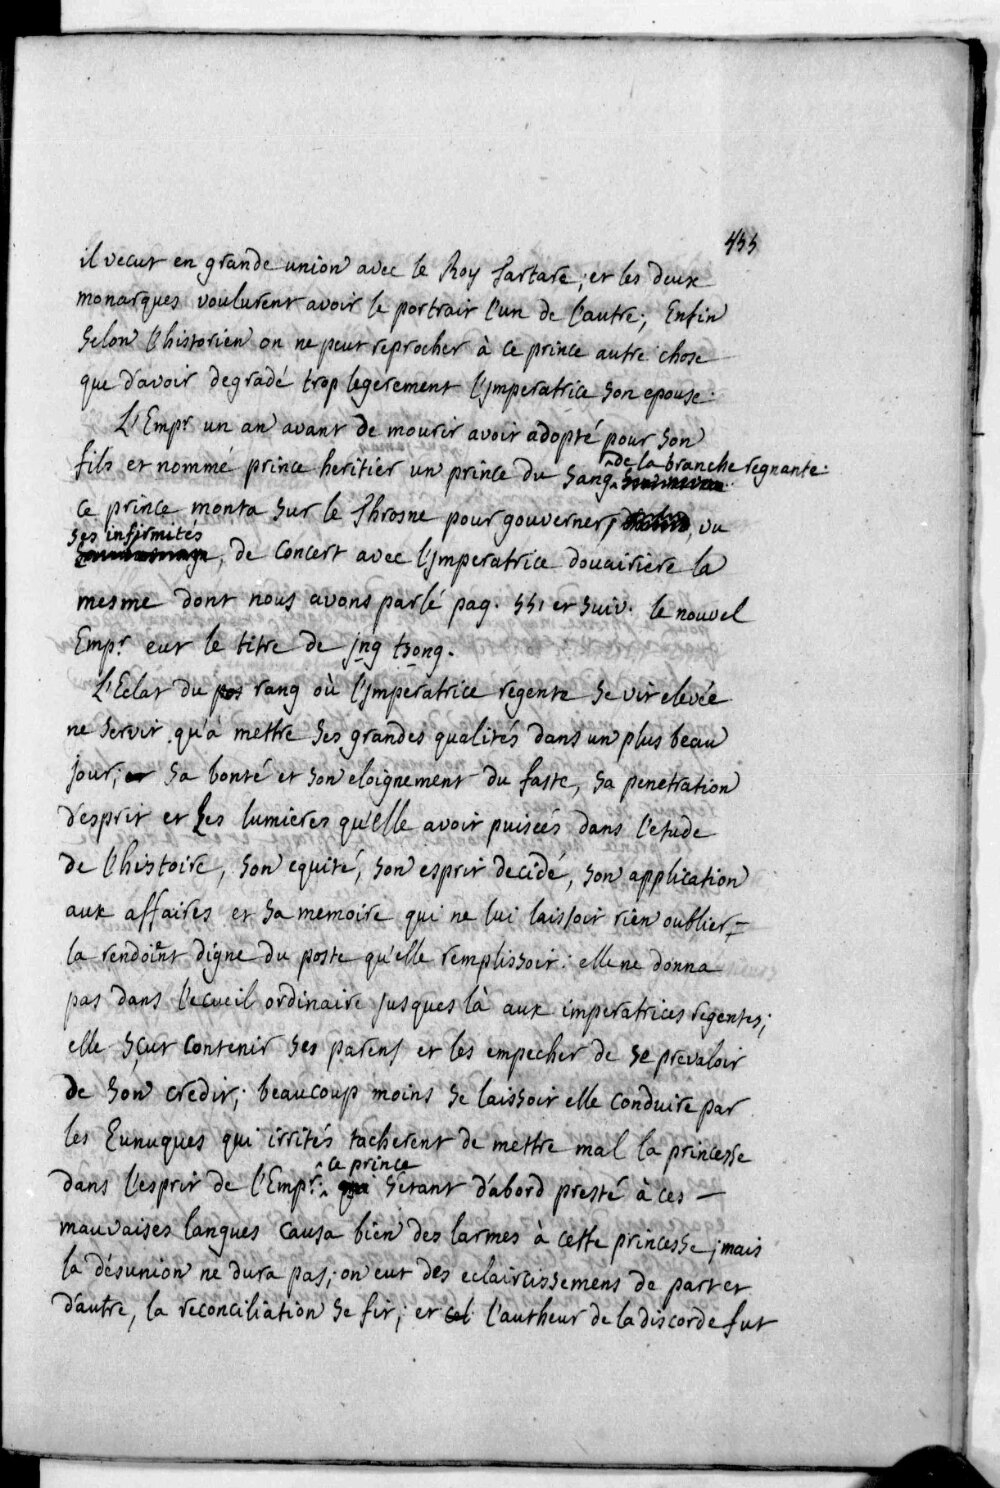 555
il vecut en grande union avec le Roy Tartare; et les deux
monarques voulurent avoir le portrait l'un de l'autre; Enfin
selon l'historien on ne peut reprocher à ce prince autre chose
que d'avoir degradé trop legerement l'jmperatrice son epouse.
L'Empr un an avant de mourir avoit adopté pour son
fils et nommé prince heritier un prince du sang de la branche regnante:
ce prince monta sur le Throsne pour gouverner, vu
ses infirmités, de concert avec l'jmperatrice douairiere la
mesme dont nous avons parlé pag. 551 et suiv. le nouvel
Empr. eut le titre de jng tsong.
L'Eclat du pos rang où l'jmperatrice regente se vit elevée
ne servit qu'à mettre ses grandes qualités dans un plus beau
jour; et sa bonté et son eloignement du faste, sa penetration
d'esprit et les lumieres qu'elle avoit puisées dans l'etude
de l'histoire, son equité, son esprit decidé, son application
aux affaires et sa memoire qui ne lui laissoit rien oublier
la rendoient digne du poste qu'elle remplissoit: elle ne donna
pas dans l'ecueil ordinaire jusques là aux imperatrices regentes;
elle sçut contenir ses parens et les empecher de se prevaloir
de son credit; beaucoup moins se laissoit elle conduire par
les Eunuques qui irrités tacherent de mettre mal la princesse
dans l'esprit de l'Empr. ce prince qui s'etant d'abord presté à ces
mauvaises langues causa bien des larmes à cette princesse; mais
la désunion ne dura pas; on eut des eclaircissemens de part et
d'autre, la reconciliation se fit; et cel l'autheur de la discorde fut